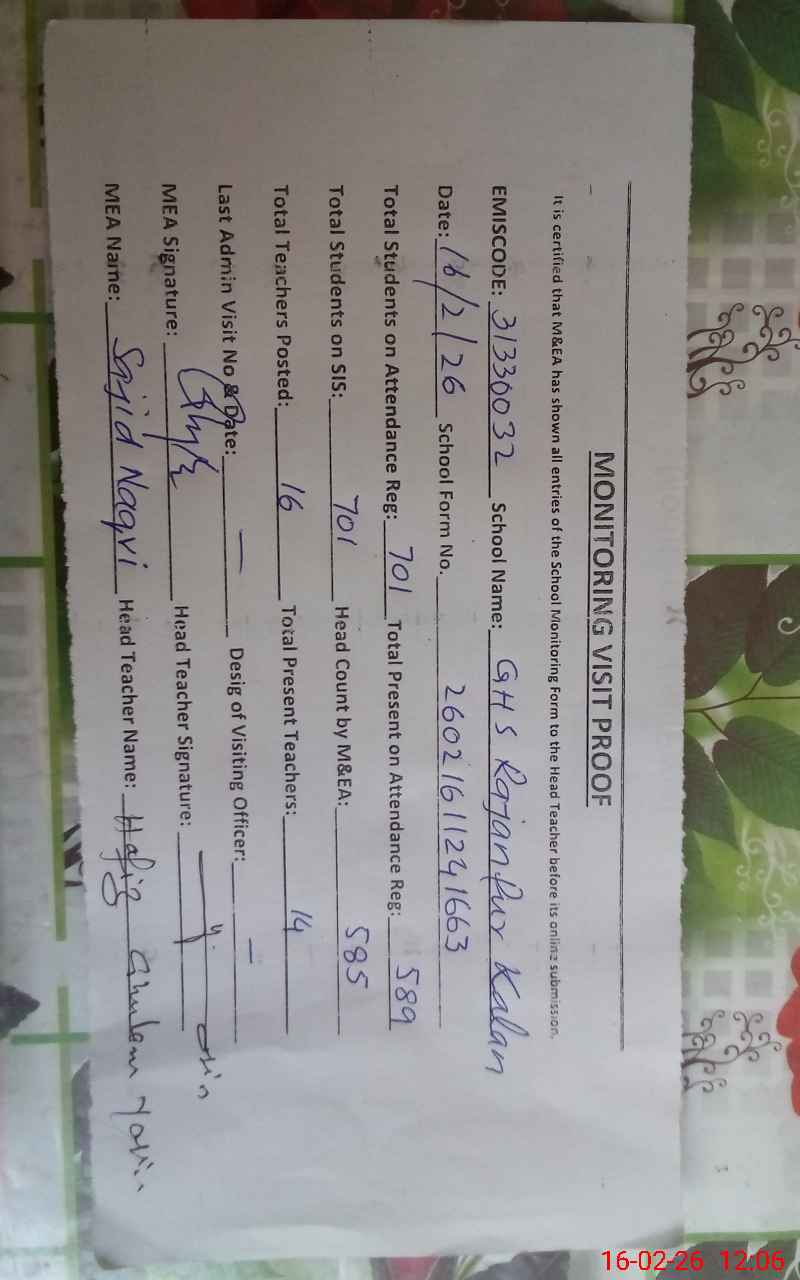 MONITORING VISIT PROOF
It is certified that M&EA has shown all entries of the School Monitoring Form to the Head Teacher before its online submission.
EMISCODE: 31330032 School Name: GHS Rajanpur Kalan
Date: 16/2/26 School Form No. 26021611241663
Total Students on Attendance Reg: 701 Total Present on Attendance Reg: 589
Total Students on SIS: 701 Head Count by M&EA: 585
Total Teachers Posted: 16 Total Present Teachers: 14
Last Admin Visit No & Date: — Desig of Visiting Officer: —
MEA Signature: Head Teacher Signature:
MEA Name: Sajjid Naqvi Head Teacher Name: Hafiz Ghulam Yasin
16-02-26 12:06